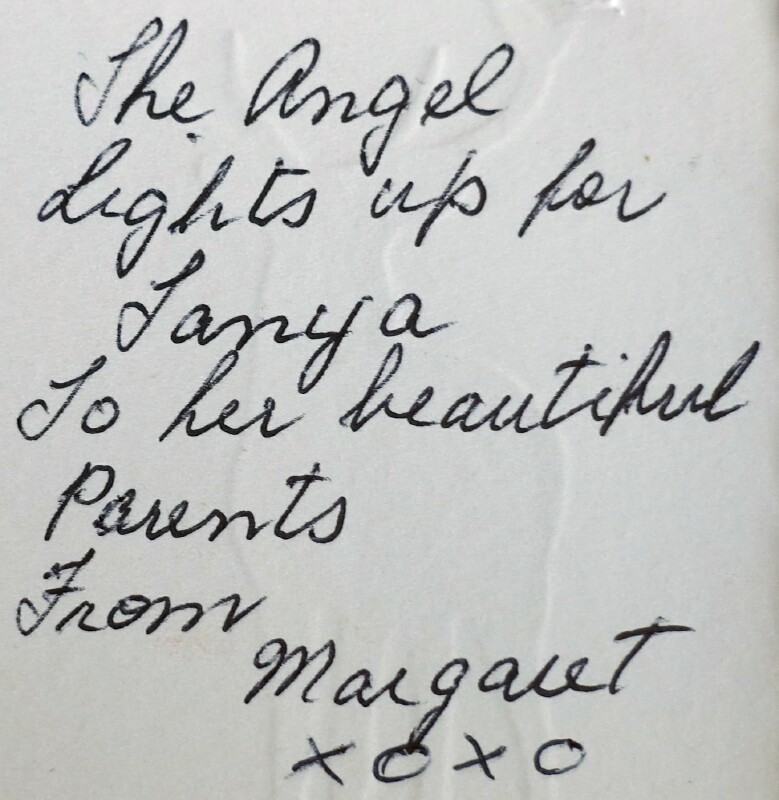 The Angel
Lights up for
Tanya
To her beautiful
Parents
From
Margaret
XOXO